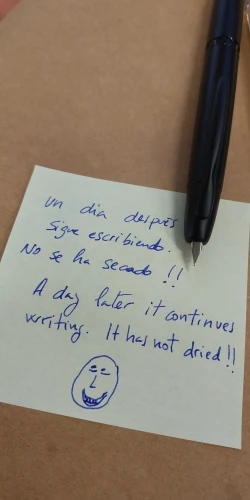 un dia después
sigue escribiendo.
No se ha secado !!
A day later it continues
writing. It has not dried!!